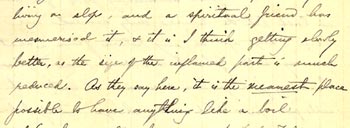 living on slops, and a spiritual friend has
mesmerised it, & it is I think getting slowly
better, as the size of the inflamed part is much
reduced. As they say here, it is the nearest place
possible to have anything like a boil